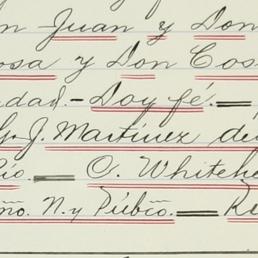 n Juan y Don
osa y Don Cos
dad.- Doy fé.
G. J. Martinez de
Rio. C. Whitehe
ño. N. y Púbco. Re